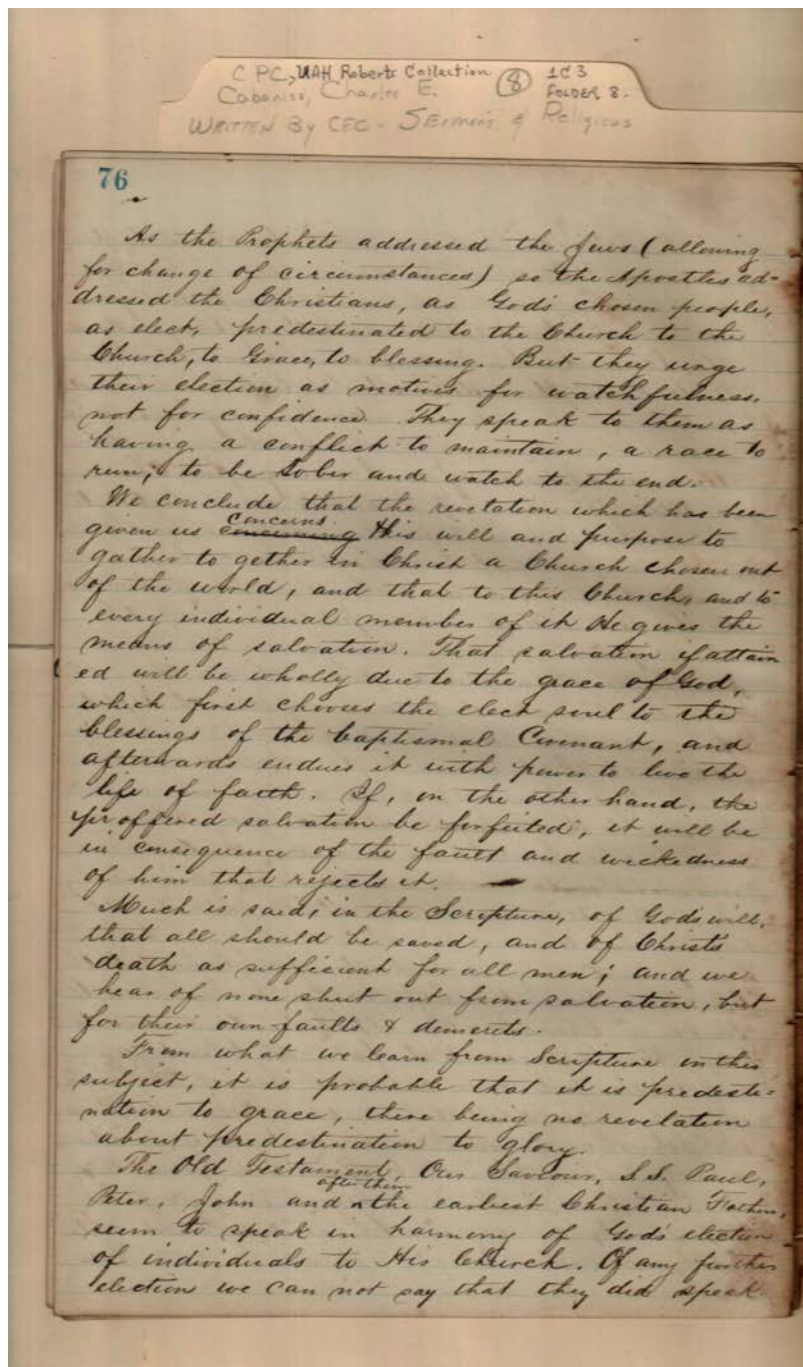 CPC, UAH Roberts Collection (8) 1C3
Cabaniss, Charles E. FOLDER 8.
WRITTEN By CEC - SErmons & Religious
76
As the Prophets addressed the Jews (allowing
for change of circumstances) so the Apostles ad-
dressed the Christians, as God's chosen people,
as elect, predestinated to the Church to the
Church, to Grace, to blessing. But they urge
their election as motives for watchfulness,
not for confidence. They speak to them as
having a conflict to maintain, a race to
run; to be sober and watch to the end.
We conclude that the revelation which has been
given us concerning concerns His will and purpose to
gather to gether in Christ a Church chosen out
of the world, and that to this Church, and to
every individual member of it He gives the
means of salvation. That salvation if attain
ed will be wholly due to the grace of God,
which first chooses the elect soul to the
blessings of the baptismal Covenant, and
afterwards endues it with power to live the
life of faith. If, on the other hand, the
proffered salvation be forfeited, it will be
in consequence of the fault and wickedness
of him that rejects it.
Much is said, in the Scripture, of God's will,
that all should be saved, and of Christ's
death as sufficient for all men; and we
hear of none shut out from salvation, but
for their own faults & demerits.
From what we learn from Scripture on this
subject, it is probable that it is predesti-
nation to grace, there being no revelation
about predestination to glory.
The Old Testament, Our Saviour, S.S. Paul,
Peter, John and after them the earliest Christian Fathers,
seem to speak in harmony of God's election
of individuals to His Church. Of any further
election we can not say that they did speak.